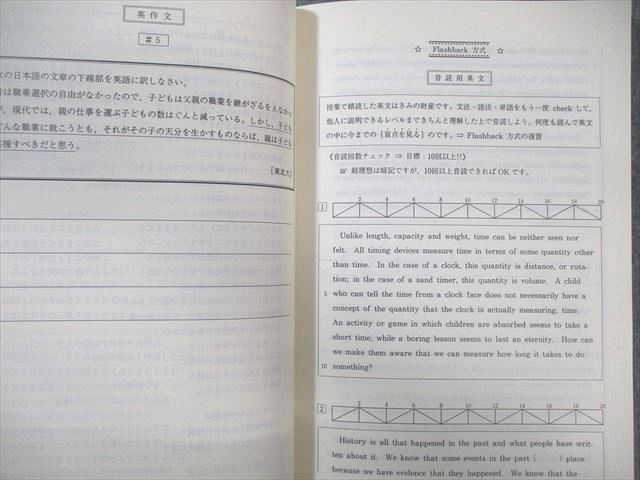 英作文
#5
の日本語の文章の下線部を英語に訳しなさい。
は職業選択の自由がなかったので、子どもは父親の職業を継がざるをえなか
、現代では、親の仕事を選ぶ子どもの数はぐんと減っている。しかし、子ども
どんな職業に就こうとも、それがその子の天分を生かすものならば、親は子ども
応援すべきだと思う。
[東北大]
☆ Flashback 方式 ☆
音読用英文
授業で精読した英文はきみの財産です。文法・語法・単語をもう一度 check して、
他人に説明できるレベルまできちんと理解した上で音読しよう。何度も読んで英文
の中に今までの [盲点を見る] のです。⇒ Flashback 方式の復習
《音読回数チェック ⇒ 目標：10回以上!!》
☞ 超理想は暗記ですが、10回以上音読できればOKです。
1 2 4 6 8 10 12 14 16 18 20
Unlike length, capacity and weight, time can be neither seen nor
felt. All timing devices measure time in terms of some quantity other
than time. In the case of a clock, this quantity is distance, or rota-
tion; in the case of a sand timer, this quantity is volume. A child
5 who can tell the time from a clock face does not necessarily have a
concept of the quantity that the clock is actually measuring, time.
An activity or game in which children are absorbed seems to take a
short time, while a boring lesson seems to last an eternity. How can
we make them aware that we can measure how long it takes to do
10 something?
2 2 4 6 8 10 12 14 16 18 20
History is all that happened in the past and what people have writ-
ten about it. We know that some events in the past ( ) place
because we have evidence that they happened. We know that the